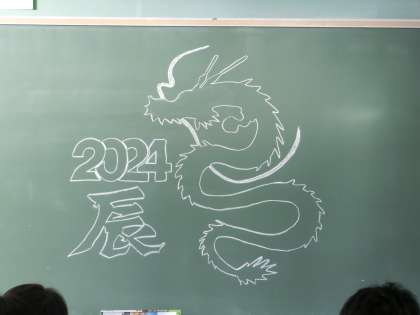 2024
辰